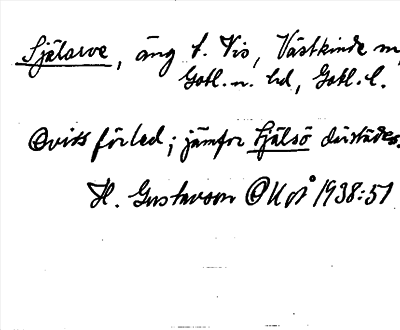 Själarve, äng t. Vis, Västkinde sn,
Gotl. n. hd, Gotl. l.
Oviss förled; jämför Själsö därstädes.
H. Gustavson OUÅ 1938:51